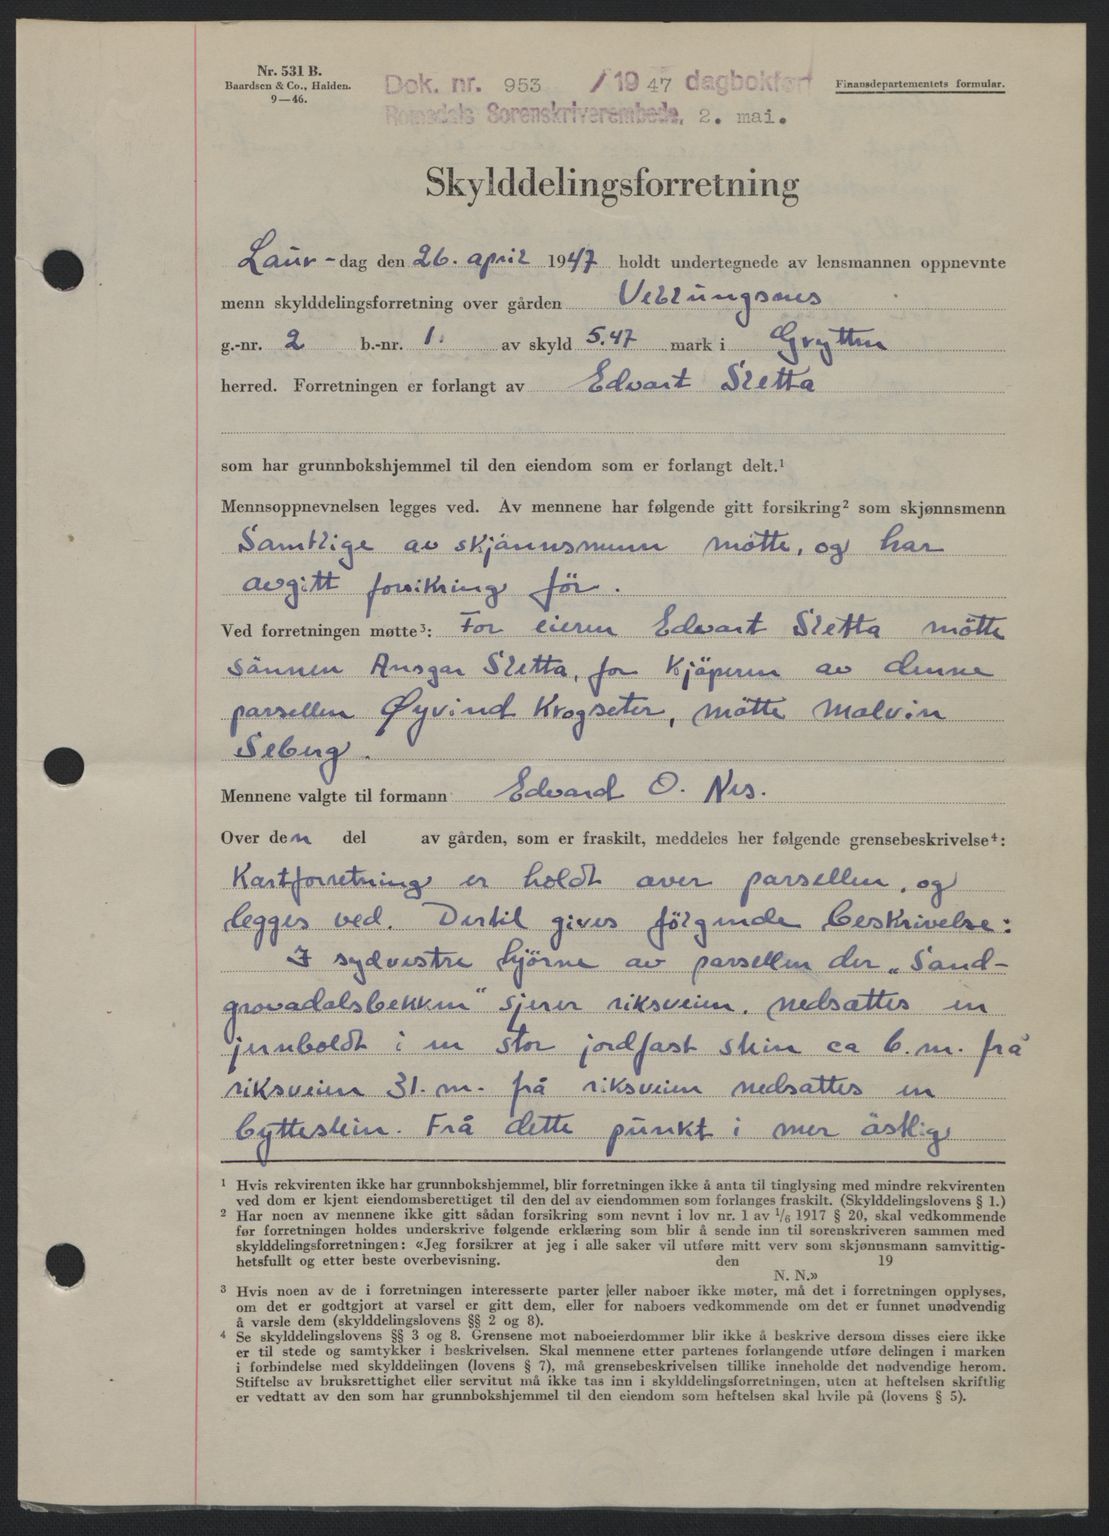 Nr. 531 B.
Baardsen & Co., Halden.
9—46.
Dok. nr. 953 /1947 dagbokført
Romsdals Sorenskriverembede, 2. mai.
Finansdepartementets formular.
Skylddelingsforretning
Laur-dag den 26. april 1947 holdt undertegnede av lensmannen oppnevnte
menn skylddelingsforretning over gården Veblungsnes
g.-nr. 2 b.-nr. 1. av skyld 5.47 mark i Grytten
herred. Forretningen er forlangt av Edvart Sletta
som har grunnbokshjemmel til den eiendom som er forlangt delt.¹
Mennsoppnevnelsen legges ved. Av mennene har følgende gitt forsikring² som skjønnsmenn
Samtlige av skjönnsmenn mötte, og har
avgitt forsikring för.
Ved forretningen møtte³: For eieren Edvart Sletta mötte
sönnen Ansgar Sletta, for kjöperen av denne
parsellen Øyvind Krogseter, mötte Malvin
Seberg.
Mennene valgte til formann Edvard O. Nes.
Over den del av gården, som er fraskilt, meddeles her følgende grensebeskrivelse⁴:
Kartforretning er holdt over parsellen, og
legges ved. Dertil gives fölgende beskrivelse:
I sydvestre hjörne av parsellen der „Sand-
grovadalsbekken" sjerer riksveien. nedsættes en
jernboldt i en stor jordfast stein ca 6. m. frå
riksveien 31. m. frå riksveien nedsattes en
bytteslein. Frå dette punkt i mer östlig
¹ Hvis rekvirenten ikke har grunnbokshjemmel, blir forretningen ikke å anta til tinglysing med mindre rekvirenten
ved dom er kjent eiendomsberettiget til den del av eiendommen som forlanges fraskilt. (Skylddelingslovens § 1.)
² Har noen av mennene ikke gitt sådan forsikring som nevnt i lov nr. 1 av 1/6 1917 § 20, skal vedkommende
før forretningen holdes underskrive følgende erklæring som blir å sende inn til sorenskriveren sammen med
skylddelingsforretningen: «Jeg forsikrer at jeg i alle saker vil utføre mitt verv som skjønnsmann samvittig-
hetsfullt og etter beste overbevisning. den 19
N. N.»
³ Hvis noen av de i forretningen interesserte parter eller naboer ikke møter, må det i forretningen opplyses,
om det er godtgjort at varsel er gitt dem, eller for naboers vedkommende om det er funnet unødvendig
å varsle dem (skylddelingslovens §§ 2 og 8).
⁴ Se skylddelingslovens §§ 3 og 8. Grensene mot naboeierdommer blir ikke å beskrive dersom disses eiere ikke
er til stede og samtykker i beskrivelsen. Skal mennene etter partenes forlangende utføre delingen i marken
i forbindelse med skylddelingen (lovens § 7), må grensebeskrivelsen tillike inneholde det nødvendige herom.
Stiftelse av bruksrettighet eller servitut må ikke tas inn i skylddelingsforretningen, uten at heftelsen skriftlig
er vedtatt av den som har grunnbokshjemmel til den eiendom som heftelsen skal hvile på (lovens § 5).